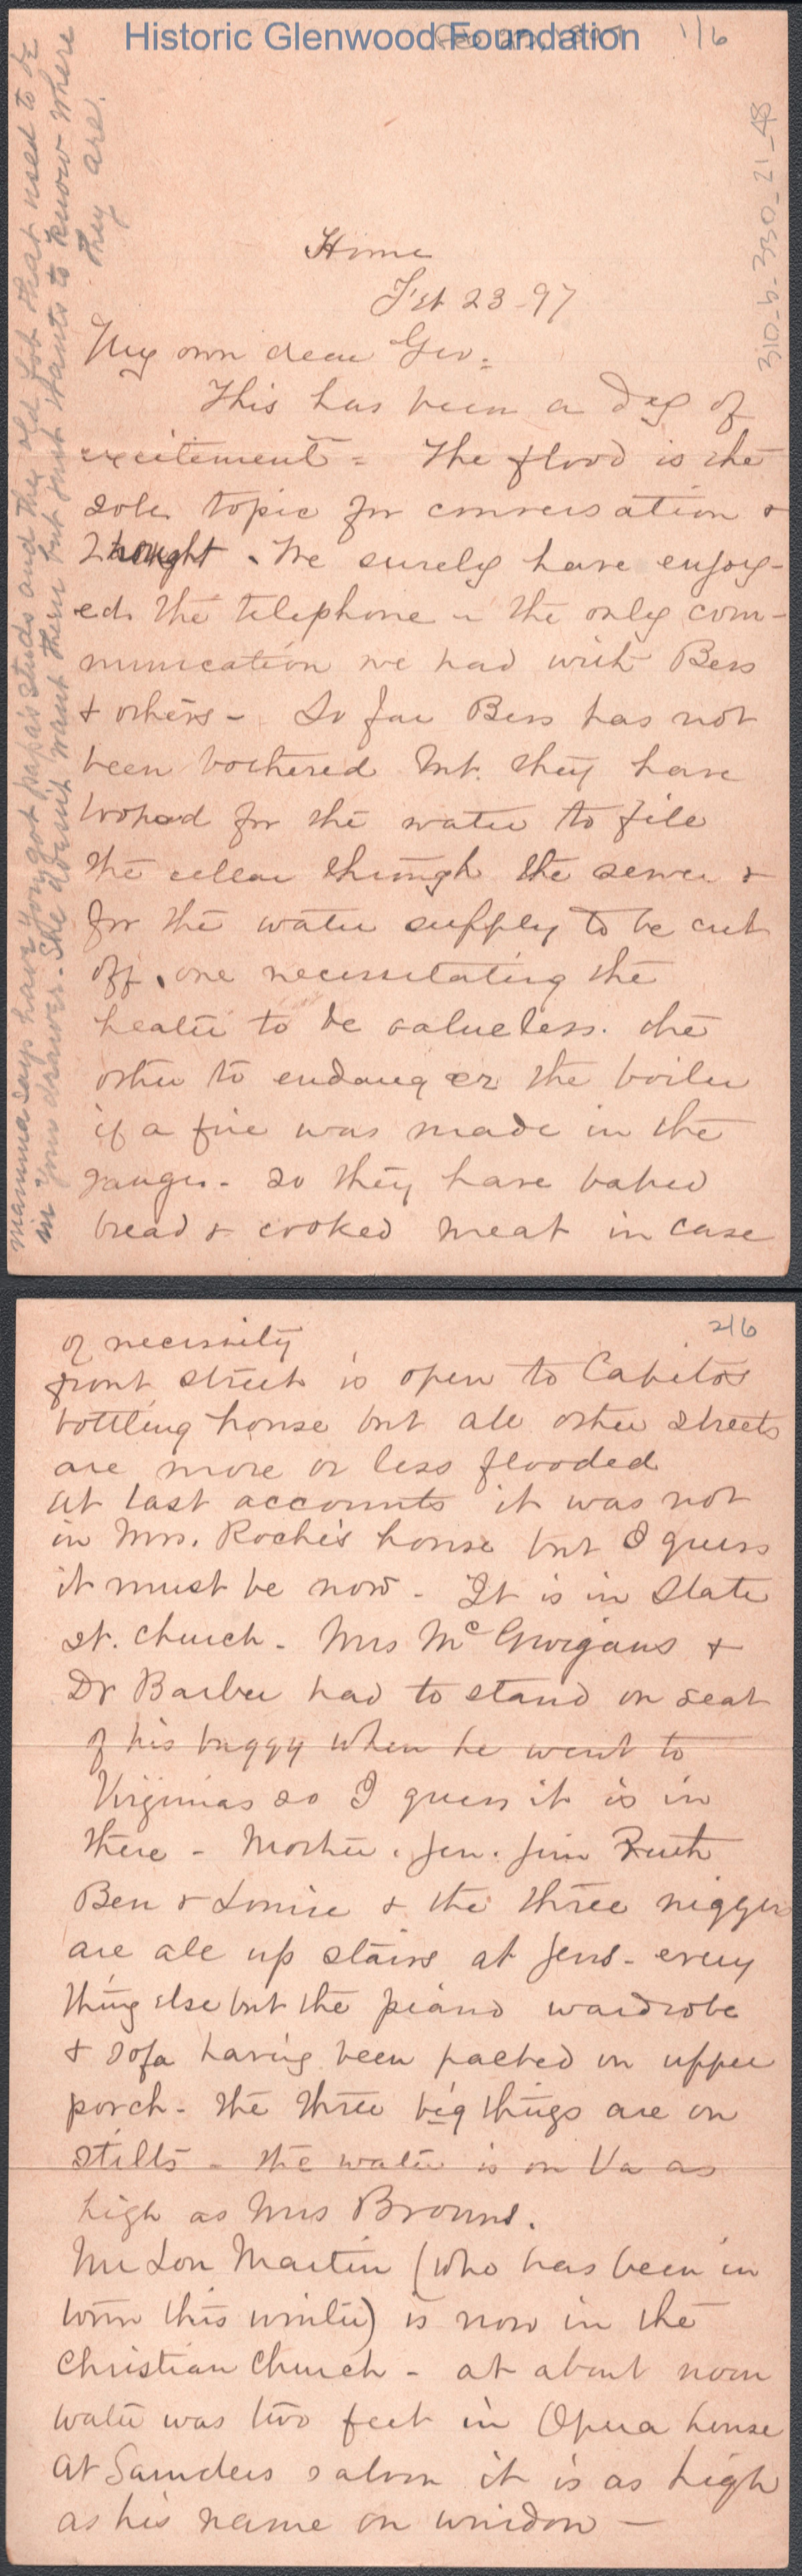 Historic Glenwood Foundation
1/6
310_b_330_21_48
Home
Feb 23-97
My own dear Geo:
This has been a day of
excitement = The flood is the
sole topic for conversation &
thought. We surely have enjoy-
ed the telephone - the only com-
munication we had with Bess
& others - So far Bess has not
been bothered but they have
looked for the water to fill
the cellar through the sewer &
for the water supply to be cut
off, one necessitating the
heater to be valueless. the
other to endanger the boiler
if a fire was made in the
range. - so they have baked
bread & cooked meat in case
mamma says have you got papa's studs and the old fob that used to be
in your drawer. She doesn't want them but just wants to know where
they are.
2/6
of necessity
front street is open to Capitol
bottling house but all other streets
are more or less flooded
at last accounts it was not
in Mrs. Roche's house but I guess
it must be now - It is in State
St. church - Mrs McGwigans &
Dr Barber had to stand on seat
of his buggy when he went to
Virginias so I guess it is in
there - Mother, Jen. Jim Ruth
Ben & Louise & the three niggers
are all up stairs at Jens - every
thing else but the piano wardrobe
& sofa having been packed on upper
porch - the three big things are on
stilts - the water is on Va as
high as Mrs Browns.
Mr Lon Martin (who has been in
town this winter) is now in the
Christian Church - at about noon
water was two feet in Opera house
at Saunders saloon it is as high
as his name on window -